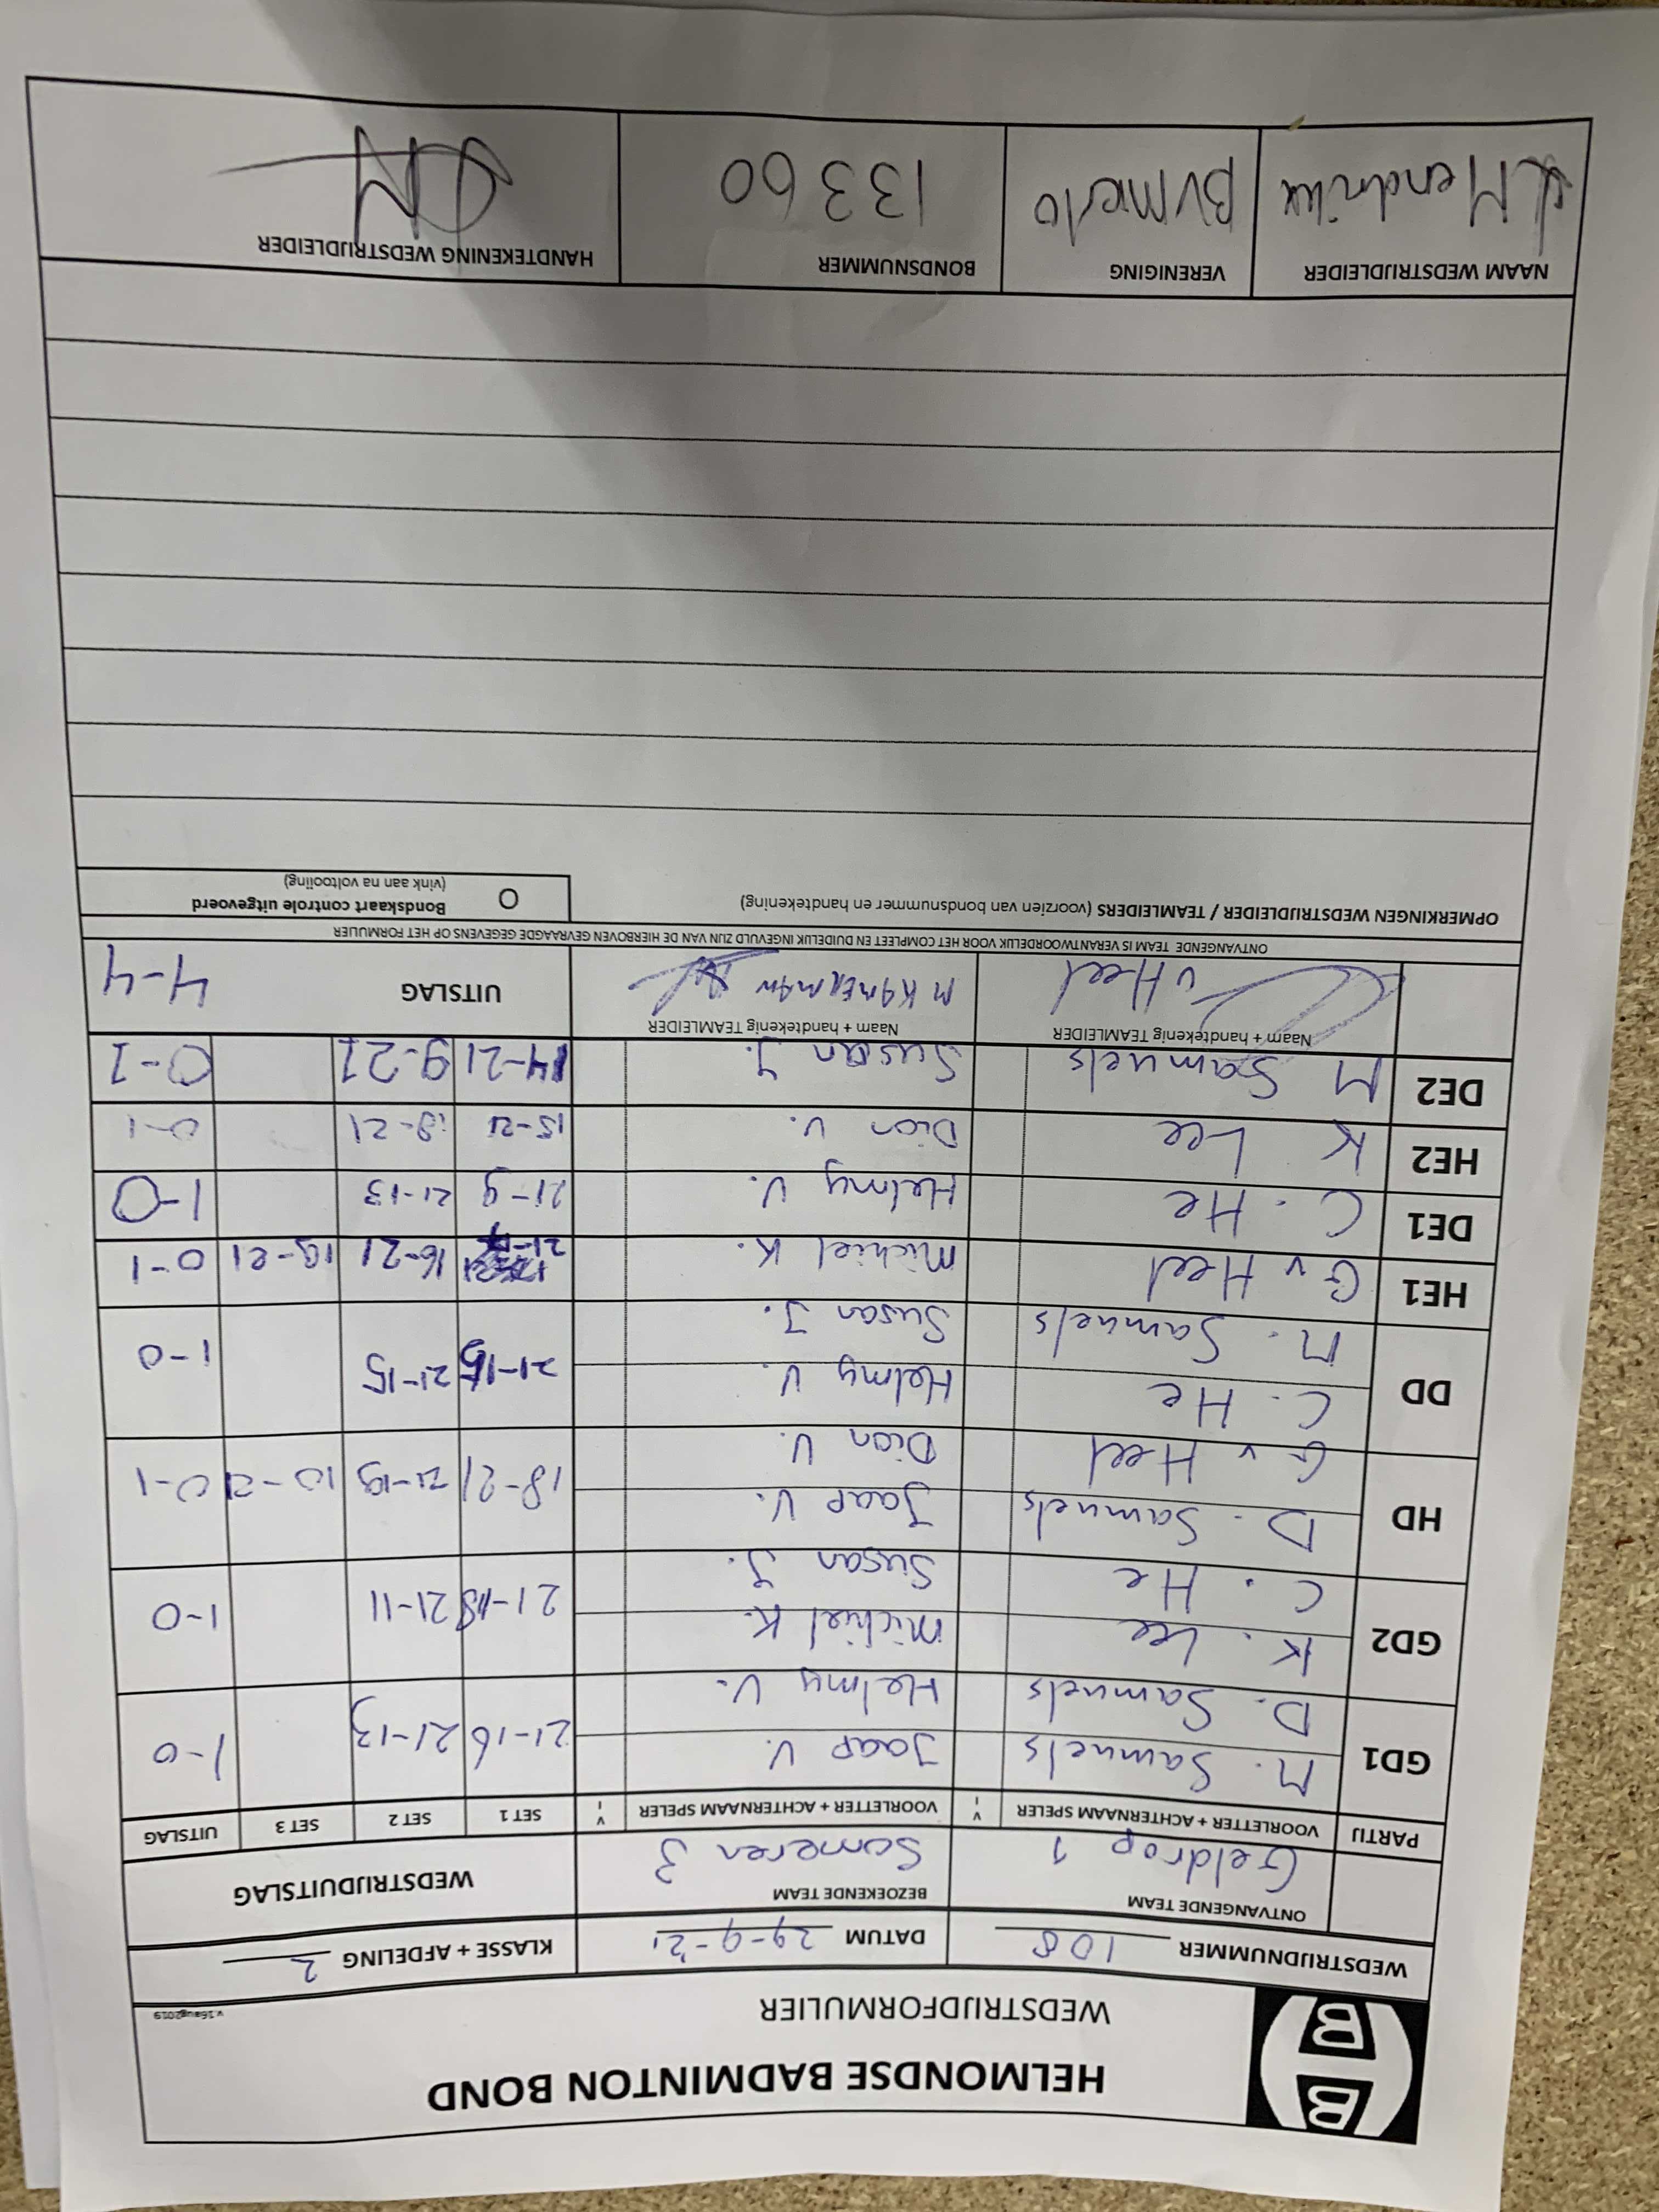 HELMONDSE BADMINTON BOND
WEDSTRIJDFORMULIER
v.16aug2019
WEDSTRIJDNUMMER 108 DATUM 29-9-'21 KLASSE + AFDELING 2
ONTVANGENDE TEAM BEZOEKENDE TEAM WEDSTRIJDUITSLAG
Geldrop 1 Someren 3
PARTIJ VOORLETTER + ACHTERNAAM SPELER V I VOORLETTER + ACHTERNAAM SPELER V I SET 1 SET 2 SET 3 UITSLAG
GD1 M. Samuels Jaap V. 21-16 21-13 1-0
D. Samuels Helmy V.
GD2 K. Lee Michiel K. 21-18 21-11 1-0
C. He Susan J.
HD D. Samuels Jaap V. 18-21 21-19 10-21 0-1
G v Heel Dion V.
DD C. He Helmy V. 21-15 21-15 1-0
M. Samuels Susan J.
HE1 G v Heel Michiel K. 16-21 19-21 0-1
DE1 C. He Helmy V. 21-9 21-13 1-0
HE2 K Lee Dion V. 15-21 18-21 0-1
DE2 M Samuels Susan J. 14-21 9-21 0-1
Naam + handtekenig TEAMLEIDER Naam + handtekenig TEAMLEIDER
v Heel M KAMERMAN UITSLAG 4-4
ONTVANGENDE TEAM IS VERANTWOORDELIJK VOOR HET COMPLEET EN DUIDELIJK INGEVULD ZIJN VAN DE HIERBOVEN GEVRAAGDE GEGEVENS OP HET FORMULIER
OPMERKINGEN WEDSTRIJDLEIDER / TEAMLEIDERS (voorzien van bondsnummer en handtekening) O Bondskaart controle uitgevoerd
(vink aan na voltooiing)
NAAM WEDSTRIJDLEIDER VERENIGING BONDSNUMMER HANDTEKENING WEDSTRIJDLEIDER
BV Mierlo 13360